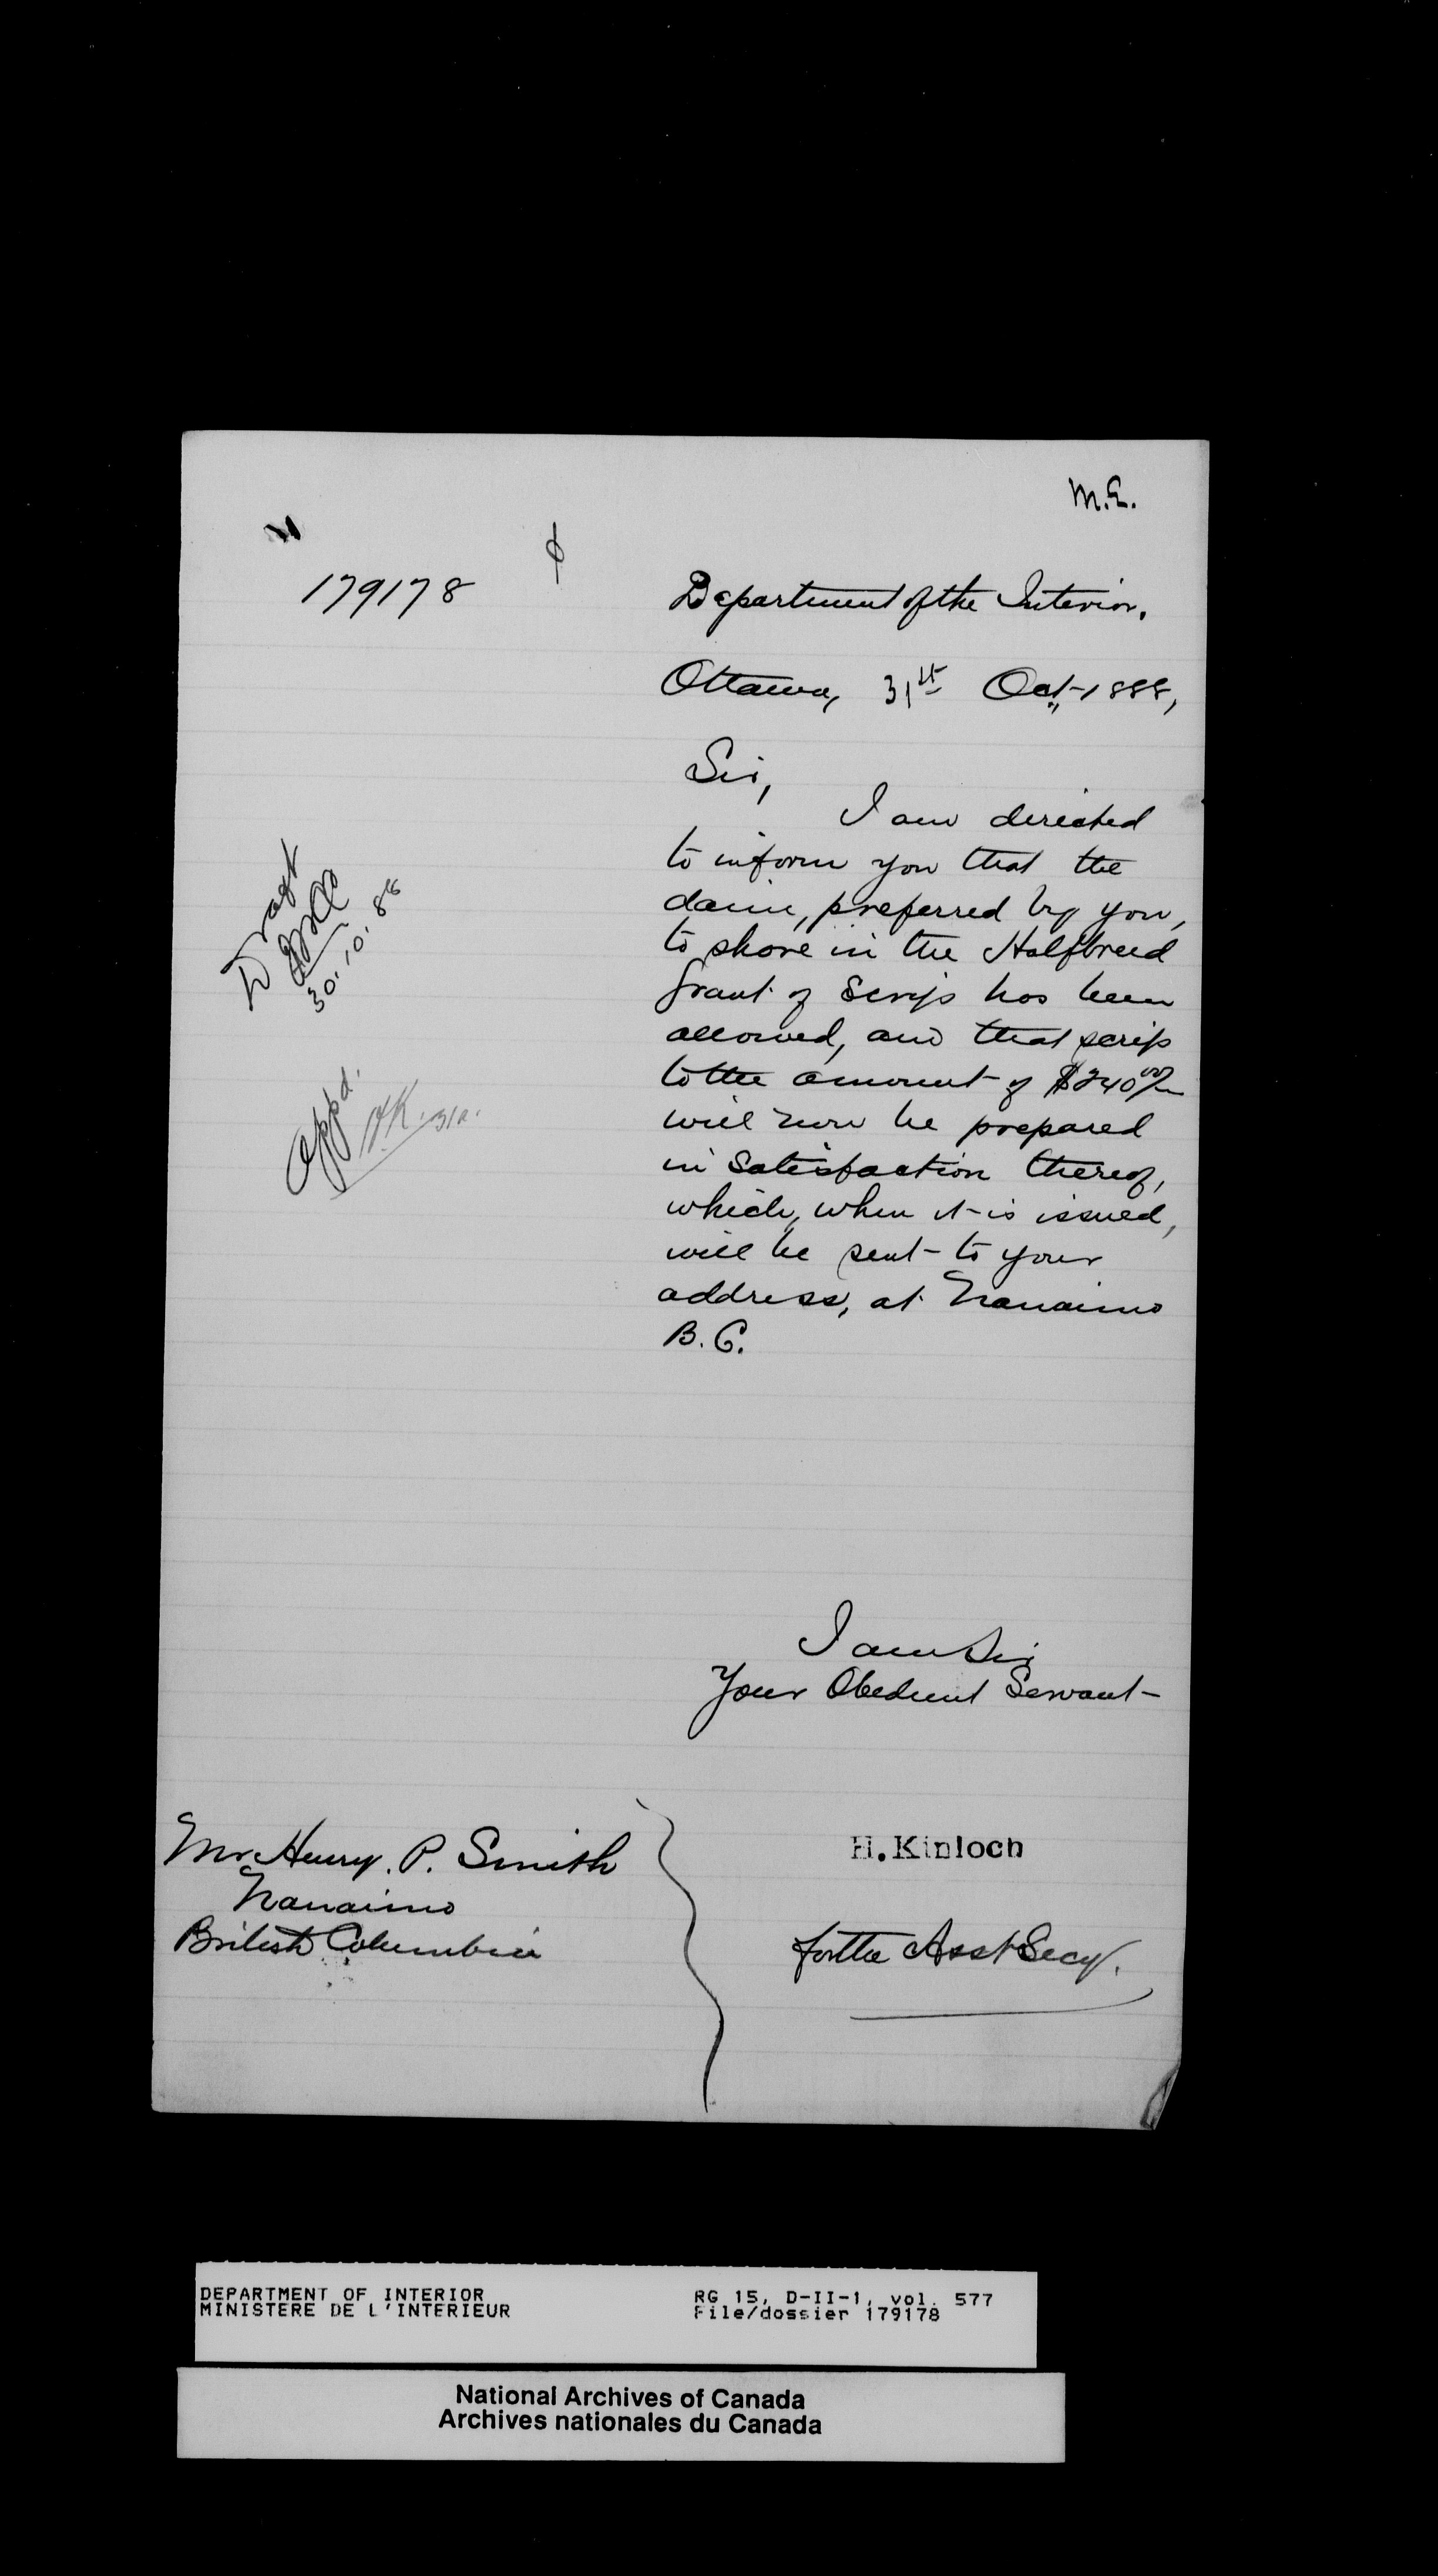 M.E.
179178
Department of the Interior.
Ottawa, 31st Oct, 1888,
Sir,
I am directed
to inform you that the
claim, preferred by you,
to share in the Halfbreed
Grant of Scrip has been
allowed, and that scrip
to the amount of $240 00/
will now be prepared
in Satisfaction thereof,
which, when it is issued,
will be sent to your
address, at Nanaimo
B.C.
Draft
30.10.88
Appd.
H.K. 31
I am Sir
Your Obedient Servant
Mr Henry. P. Smith
Nanaimo
British Columbia
H. Kinloch
for the Asst Secy.
DEPARTMENT OF INTERIOR
MINISTERE DE L'INTERIEUR
RG 15, D-II-1, vol. 577
File/dossier 179178
National Archives of Canada
Archives nationales du Canada